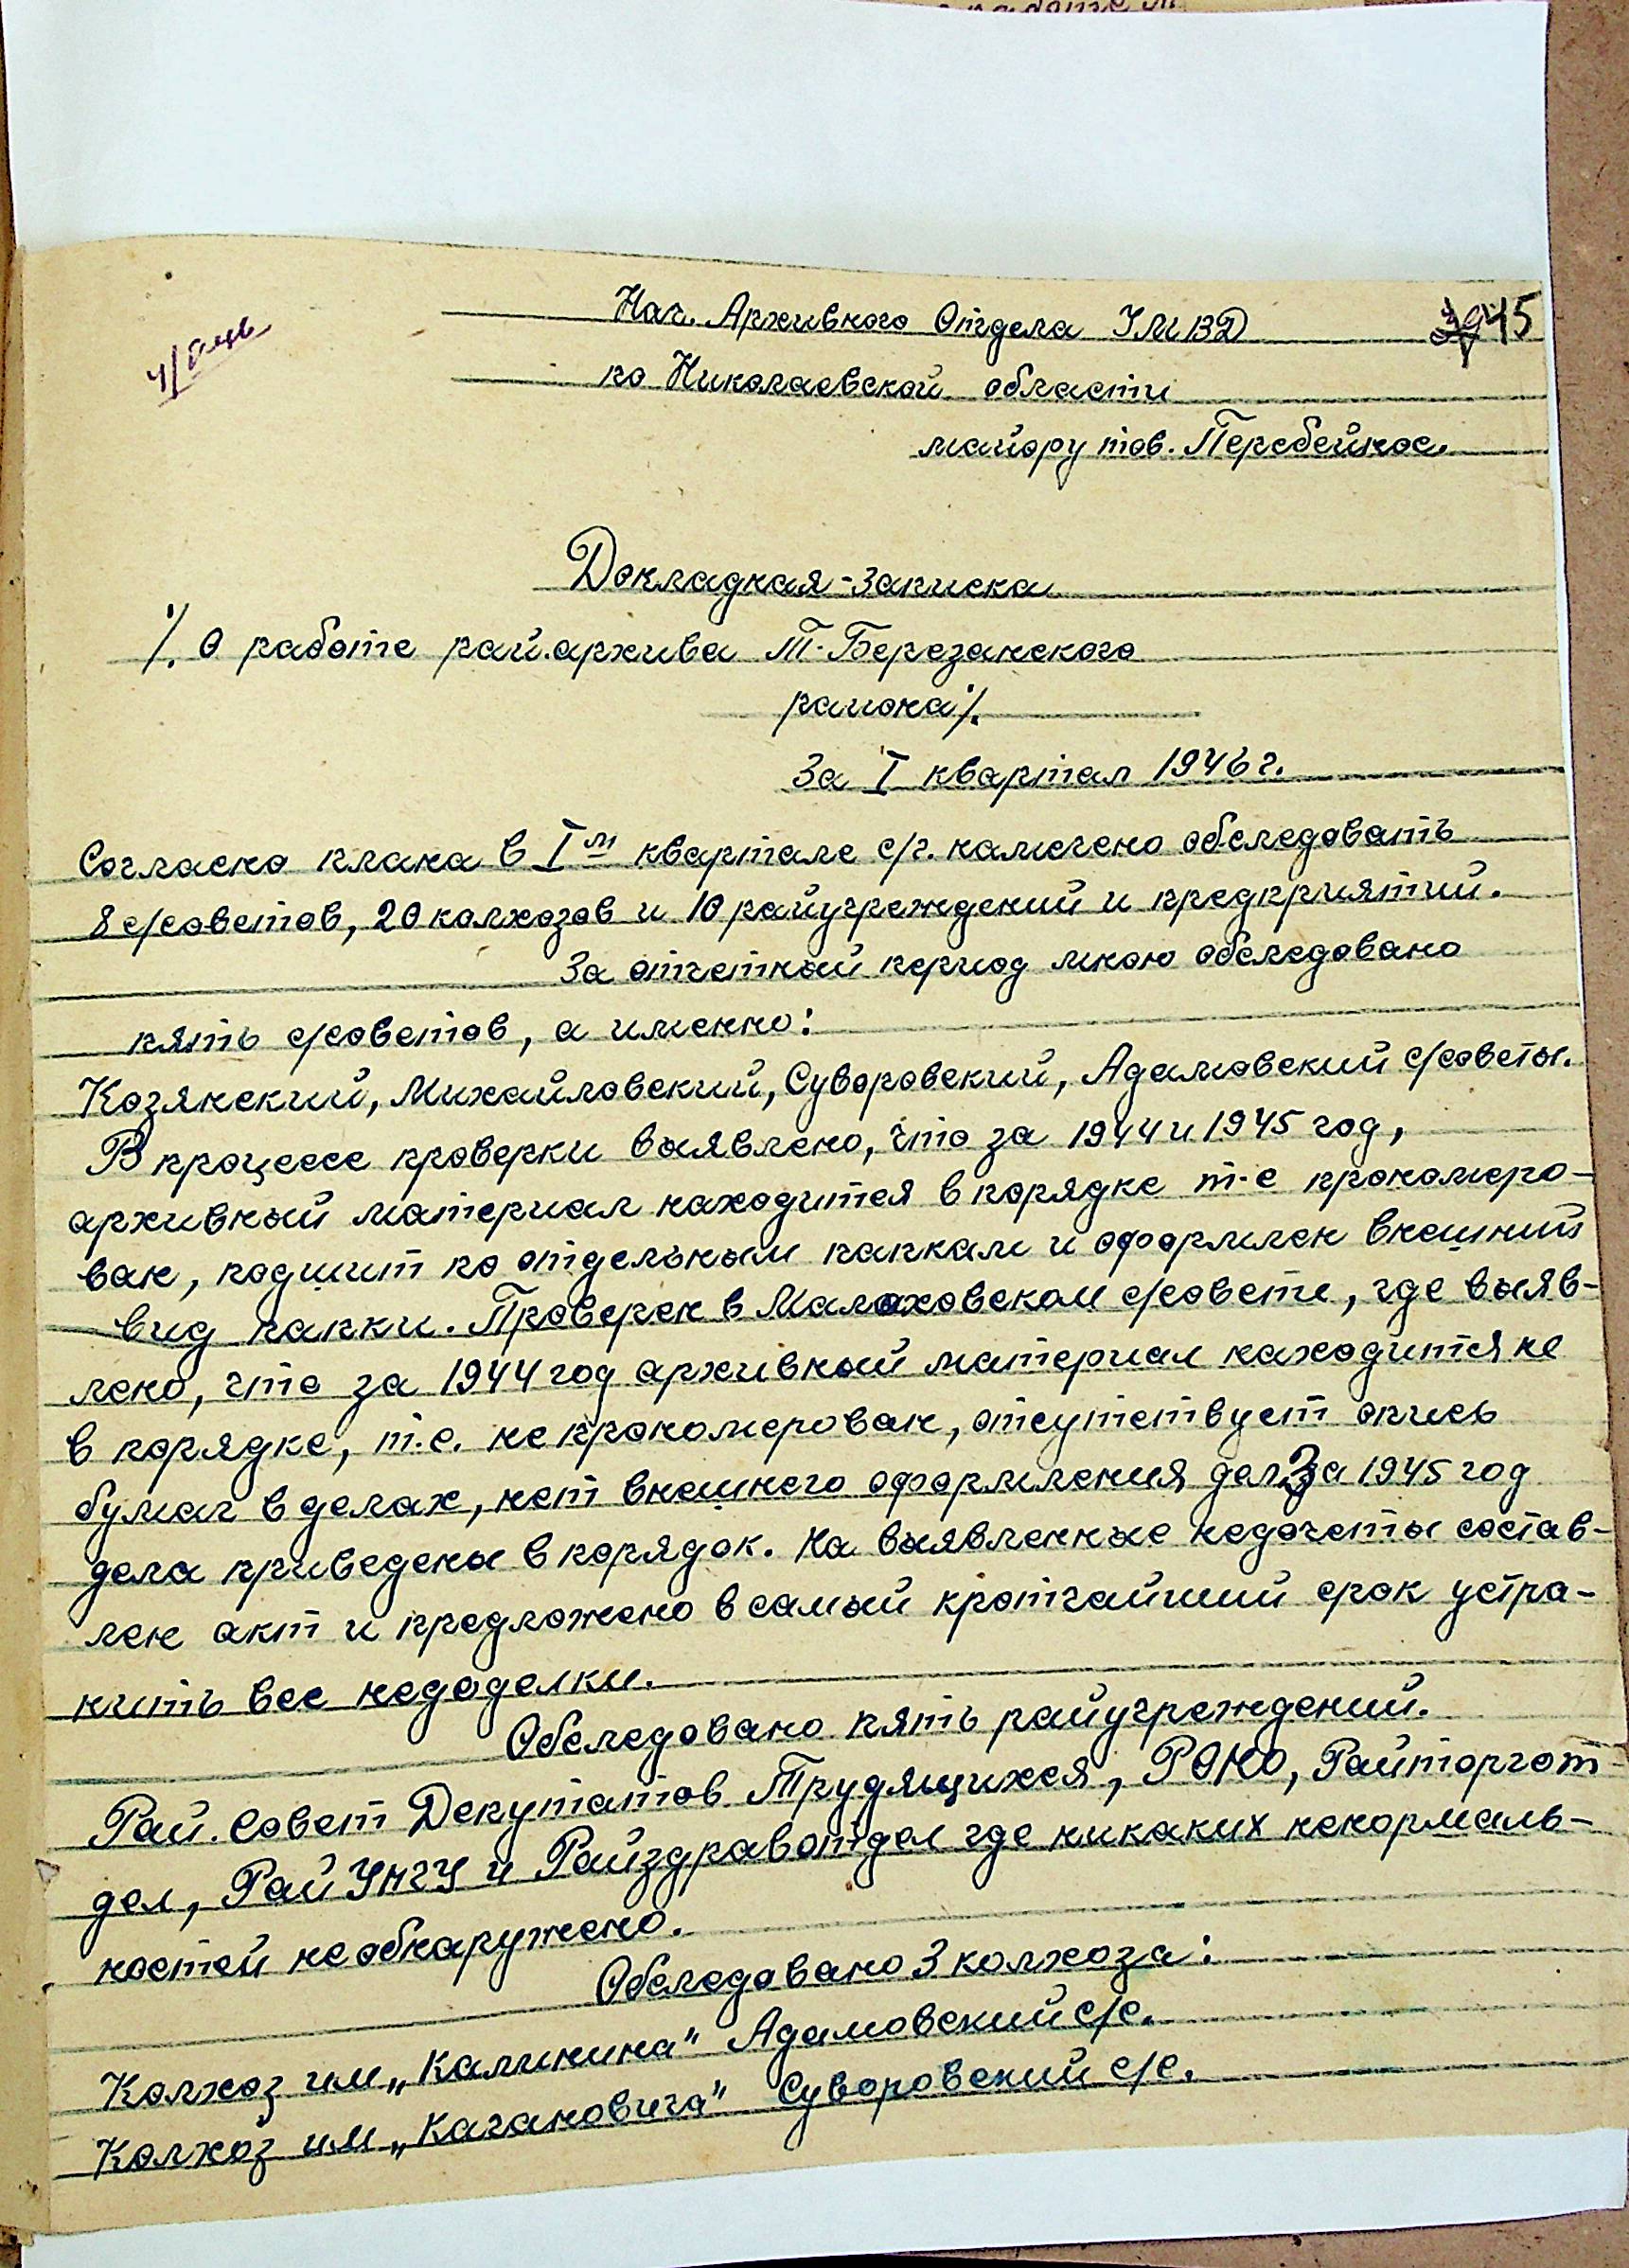 Нач. Архивного Отдела УМВД 45
по Николаевской области
майору тов. Перебейнос.
Докладная-записка
/. О работе рай.архива Т-Березанского
района/.
За I квартал 1946 г.
Согласно плана в I м квартале с/г. намечено обследовать
8 с/советов, 20 колхозов и 10 райучреждений и предприятий.
За отчетный период мною обследовано
пять с/советов, а именно:
Козянский, Михайловский, Суворовский, Адамовский с/советы.
В процессе проверки выявлено, что за 1944 и 1945 год,
архивный материал находится в порядке т-е прономеро-
ван, подшит по отдельным папкам и оформлен внешний
вид папки. Проверен в Малаховском с/совете, где выяв-
лено, что за 1944 год архивный материал находится не
в порядке, т.е. не прономерован, отсутствует опись
бумаг в делах, нет внешнего оформления дел За 1945 год
дела приведены в порядок. На выявленные недочеты состав-
лен акт и предложено в самый кротчайший срок устра-
нить все недоделки.
Обследовано пять райучреждений.
Рай. Совет Депутатов Трудящихся, РОНО, Райторгот-
дел, Рай УНГУ и Райздравотдел где никаких ненормаль-
ностей не обнаружено.
Обследовано 3 колхоза:
Колхоз им „Калинина" Адамовский с/с.
Колхоз им „Кагановича" Суворовский с/с.